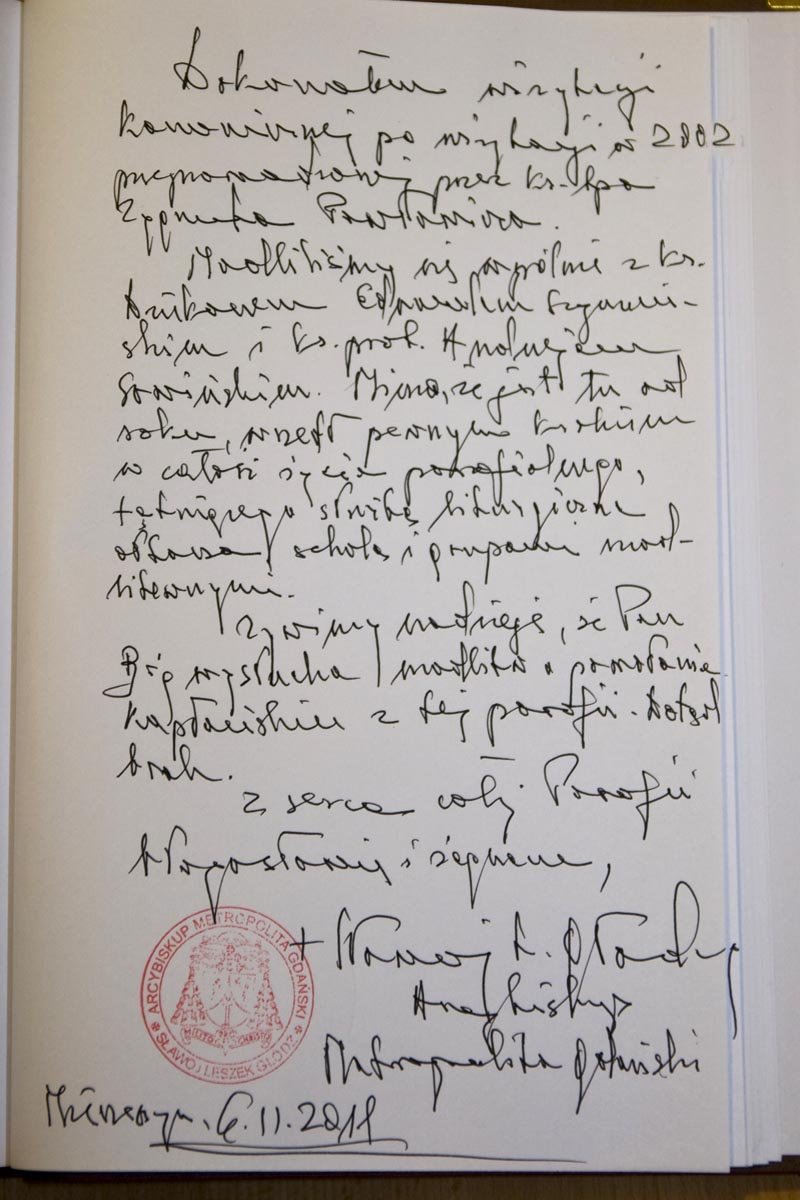 Dokonałem wizytacji
kanonicznej po wizytacji w 2002
przeprowadzonej przez ks. bpa
Zygmunta Pawłowicza.
Modliliśmy się wspólnie z ks.
Dziekanem Edwardem Szymań-
skim i ks. prob. Andrzejem
Sowińskim. Mimo, że jest tu od
roku, wszedł pewnym krokiem
w całość życia parafialnego,
tętniącego służbą liturgiczną
ołtarza, scholą i grupami mod-
litewnymi.
Żywimy nadzieję, że Pan
Bóg wysłucha modlitw o powołanie
kapłańskie z tej parafii. Dotąd
brak.
Z serca całej Parafii
błogosławię i żegnam,
+ Sławoj L. Głódź
Arcybiskup
Metropolita Gdański
ARCYBISKUP METROPOLITA GDAŃSKI
SŁAWOJ LESZEK GŁÓDŹ
6.II.2011